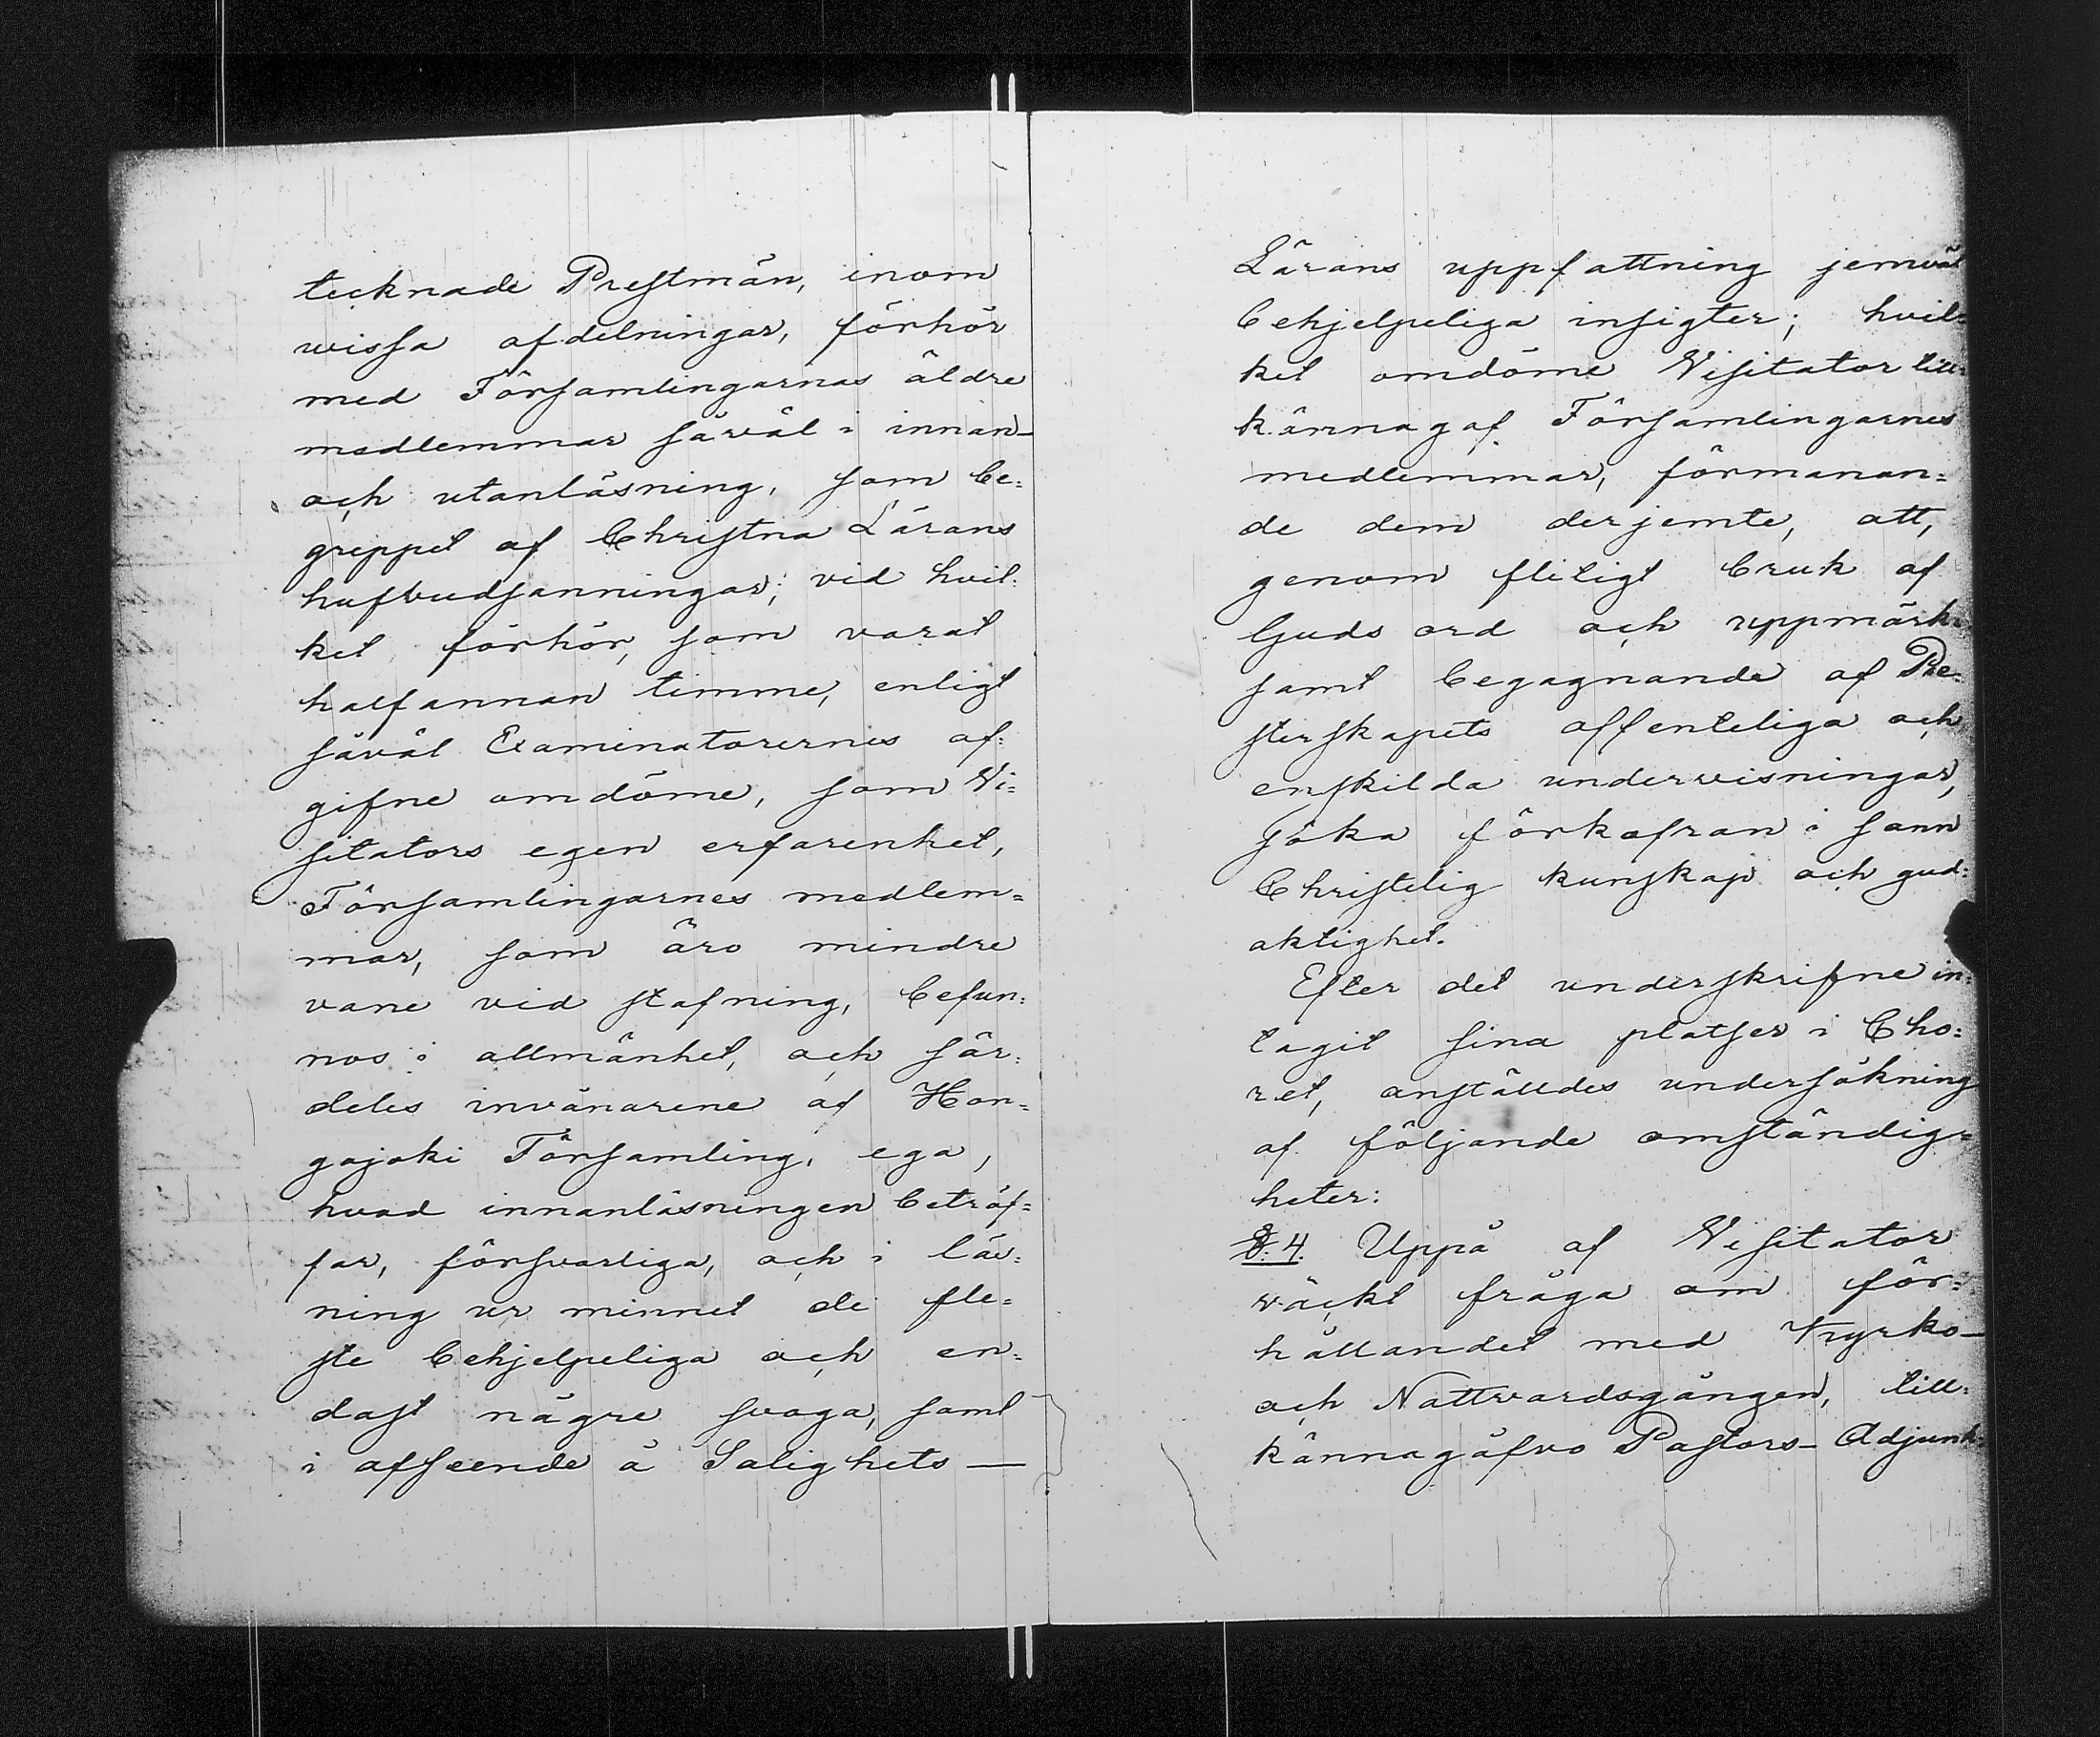 tecknade Prestmän, inom
wissa afdelningar, förhör
med Församlingarnas äldre
medlemmar såväl i innan-
och utanläsning, som be=
greppet af Christna Lärans
hufvudsanningar; vid hvil=
ket förhör, som varat
half annan timme, enligt
såväl Examinatorernes af=
gifne omdöme, som Vi=
sitators egen erfarenhet,
Församlingarnes medlem=
mar, som äro mindre
vane vid stafning, befun=
nos i allmänhet, och sär=
deles invånarene af Hon=
gojoki Församling, ega,
hvad innanläsningen beträf=
far, försvarliga, och i läs=
ning ur minnet de fle=
ste behjelpeliga och en=
dast någre svaga, samt
i afseende å Salighets —
Lärans uppfattning jemväl
behjelpeliga insigter; hvil=
ket omdöme Visitator till=
kännagaf Församlingarnes
medlemmar, förmanan=
de dem derjemte, att,
genom fliligt bruk af
Guds ord och uppmärk=
samt begagnande af Pre=
sterskapets offenteliga och
enskilda undervisningar,
söka förkofran i sann
Christelig kunskap och gud=
aktighet.
Efter det underskrifne in=
tagit sina platser i Cho=
ret, anställdes undersökning
af följande omständig=
heter:
§. 4. Uppå af Visitator
väckt fråga om för=
hållandet med Kyrko-
och Nattvardsgången, till=
kännagåfvo Pastors-Adjunk=